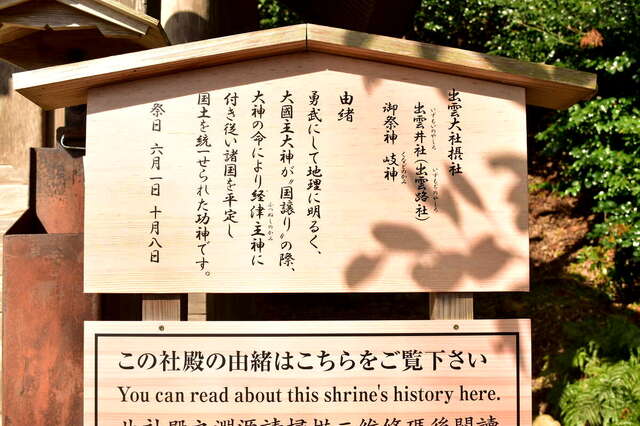 出雲大社摂社
出雲井社(出雲路社)
いずもいのやしろ いずもじのやしろ
御祭神 岐神
くなどのかみ
由緒
勇武にして地理に明るく、
大國主大神が〝国譲り〟の際、
大神の命により経津主神に
ふつぬしのかみ
付き従い諸国を平定し
国土を統一せられた功神です。
祭日 六月一日 十月八日
この社殿の由緒はこちらをご覧下さい
You can read about this shrine's history here.